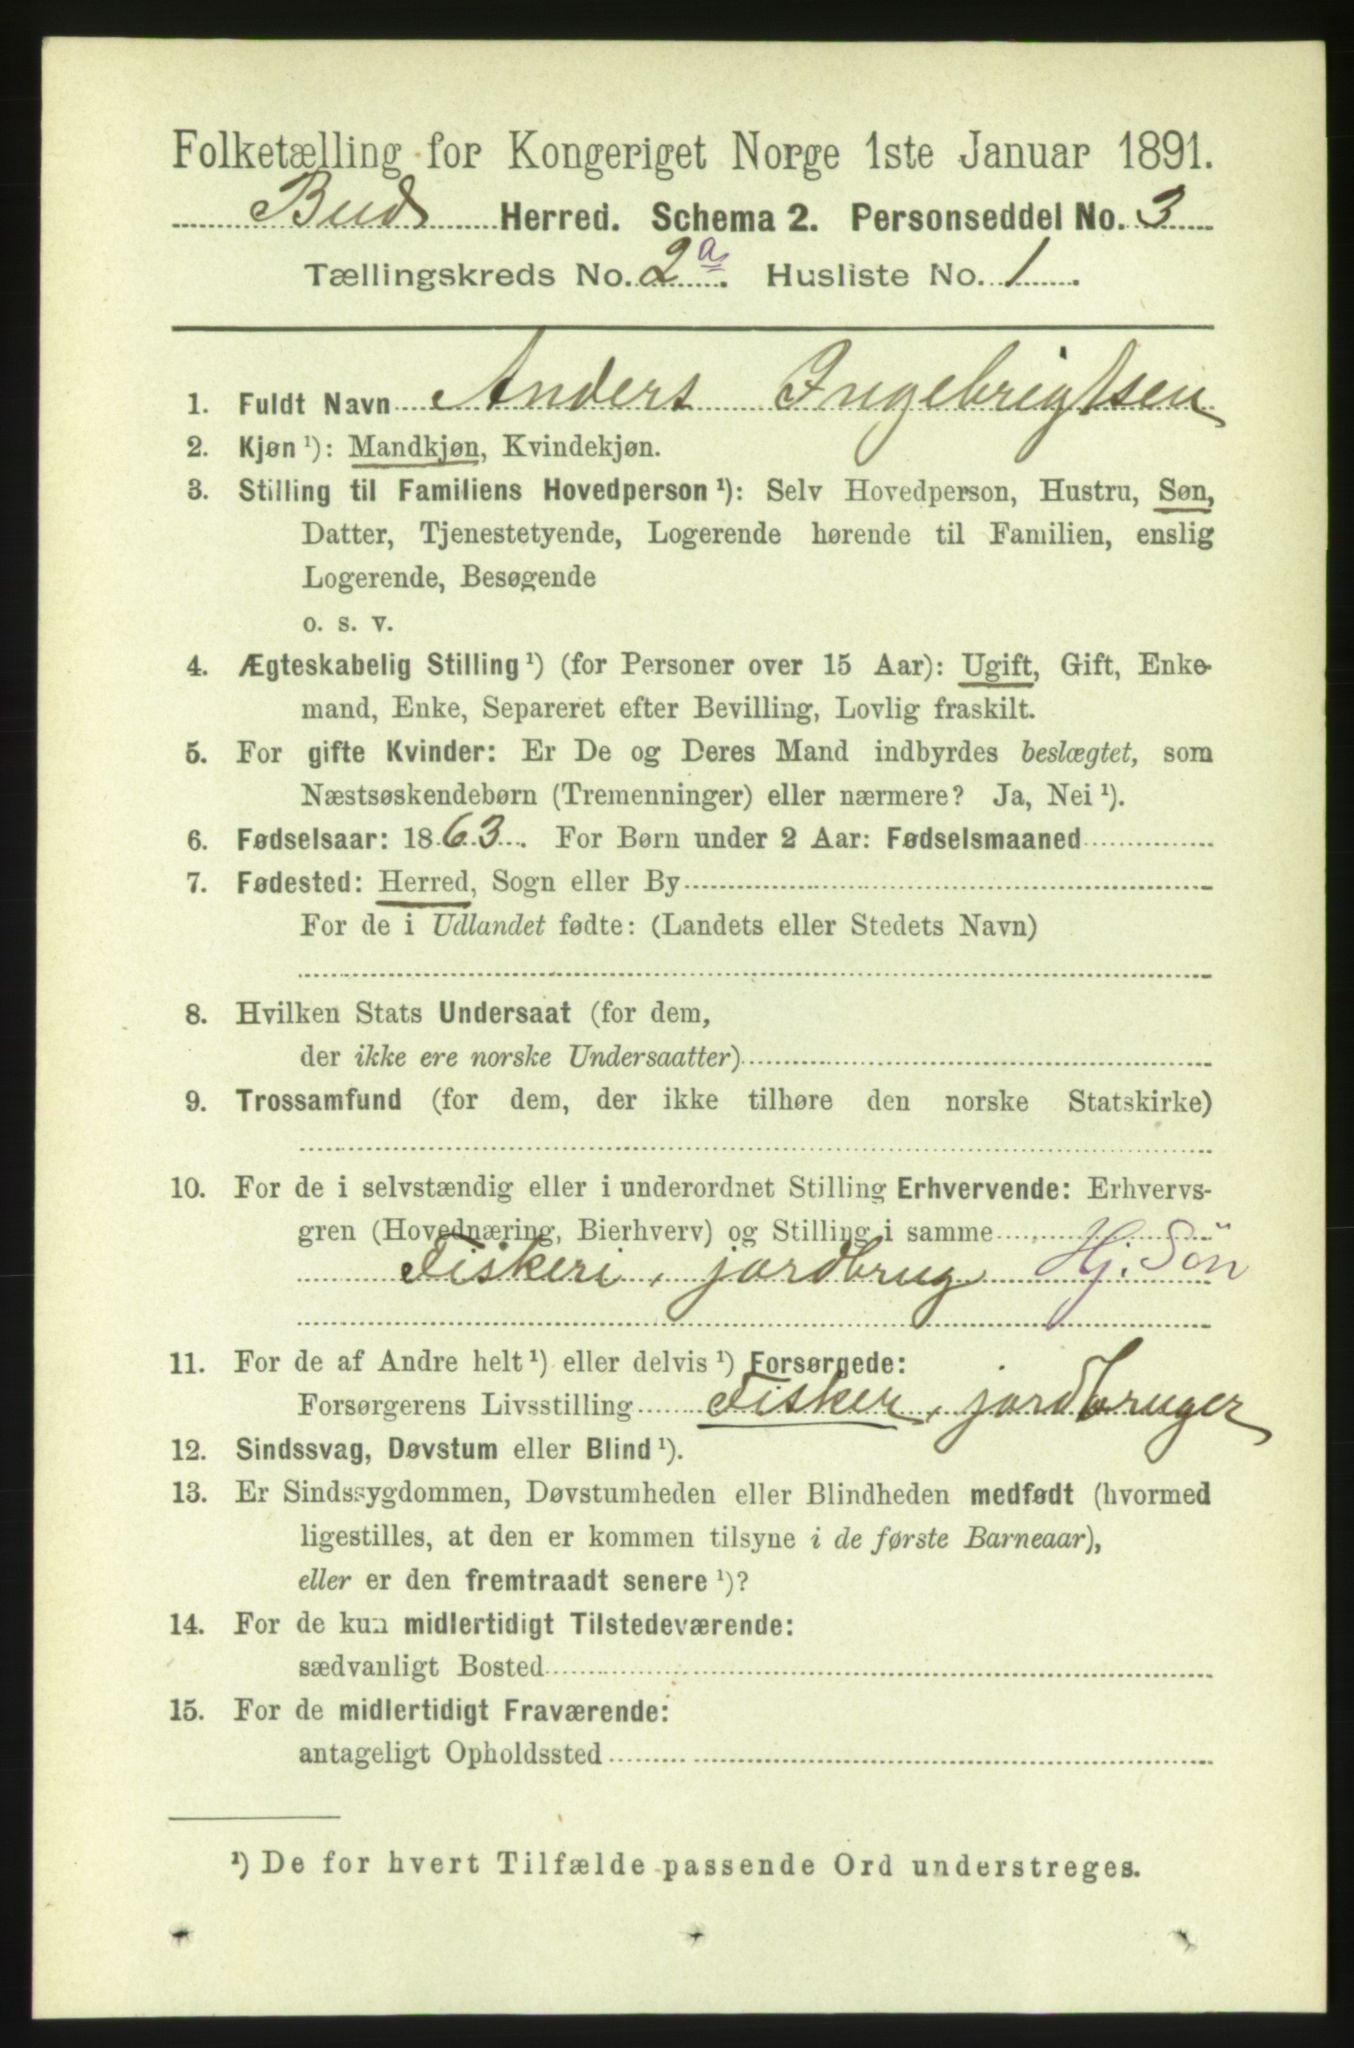 Folketælling for Kongeriget Norge 1ste Januar 1891.
Buds Herred. Schema 2. Personseddel No. 3
Tællingskreds No. 2a. Husliste No. 1.
1. Fuldt Navn Anders Ingebrigtsen
2. Kjøn ¹): Mandkjøn, Kvindekjøn.
3. Stilling til Familiens Hovedperson ¹): Selv Hovedperson, Hustru, Søn,
Datter, Tjenestetyende, Logerende hørende til Familien, enslig
Logerende, Besøgende
o. s. v.
4. Ægteskabelig Stilling ¹) (for Personer over 15 Aar): Ugift, Gift, Enke-
mand, Enke, Separeret efter Bevilling, Lovlig fraskilt.
5. For gifte Kvinder: Er De og Deres Mand indbyrdes beslægtet, som
Næstsøskendebørn (Tremenninger) eller nærmere? Ja, Nei ¹).
6. Fødselsaar: 1863. For Børn under 2 Aar: Fødselsmaaned
7. Fødested: Herred, Sogn eller By
For de i Udlandet fødte: (Landets eller Stedets Navn)
8. Hvilken Stats Undersaat (for dem,
der ikke ere norske Undersaatter)
9. Trossamfund (for dem, der ikke tilhøre den norske Statskirke)
10. For de i selvstændig eller i underordnet Stilling Erhvervende: Erhvervs-
gren (Hovednæring, Bierhverv) og Stilling i samme
Fiskeri, jordbrug Hj. Sön
11. For de af Andre helt ¹) eller delvis ¹) Forsørgede:
Forsørgerens Livsstilling Fisker, jordbruger
12. Sindssvag, Døvstum eller Blind ¹).
13. Er Sindssygdommen, Døvstumheden eller Blindheden medfødt (hvormed
ligestilles, at den er kommen tilsyne i de første Barneaar),
eller er den fremtraadt senere ¹)?
14. For de kun midlertidigt Tilstedeværende:
sædvanligt Bosted
15. For de midlertidigt Fraværende:
antageligt Opholdssted
¹) De for hvert Tilfælde passende Ord understreges.